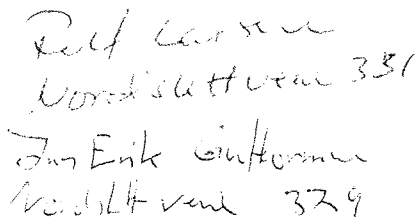 Rolf Larsen
Nordslettveien 331
Jan Erik
Nordslettveien 329